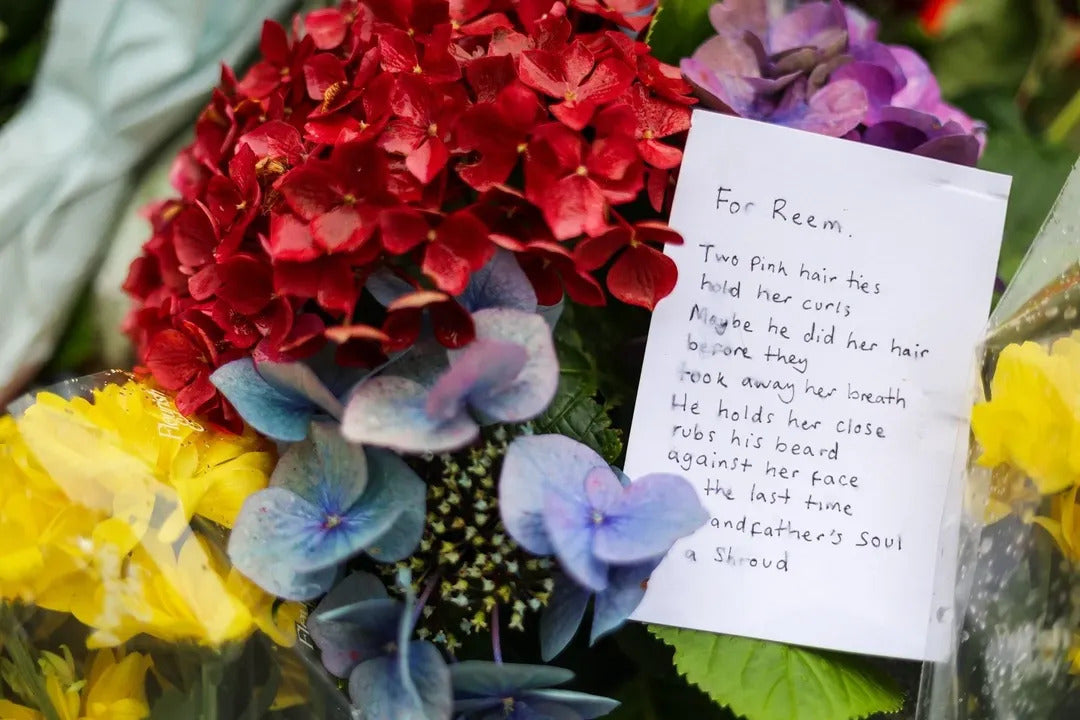 For Reem.
Two pink hair ties
hold her curls
Maybe he did her hair
before they
took away her breath
He holds her close
rubs his beard
against her face
the last time
andfather's soul
a Shroud